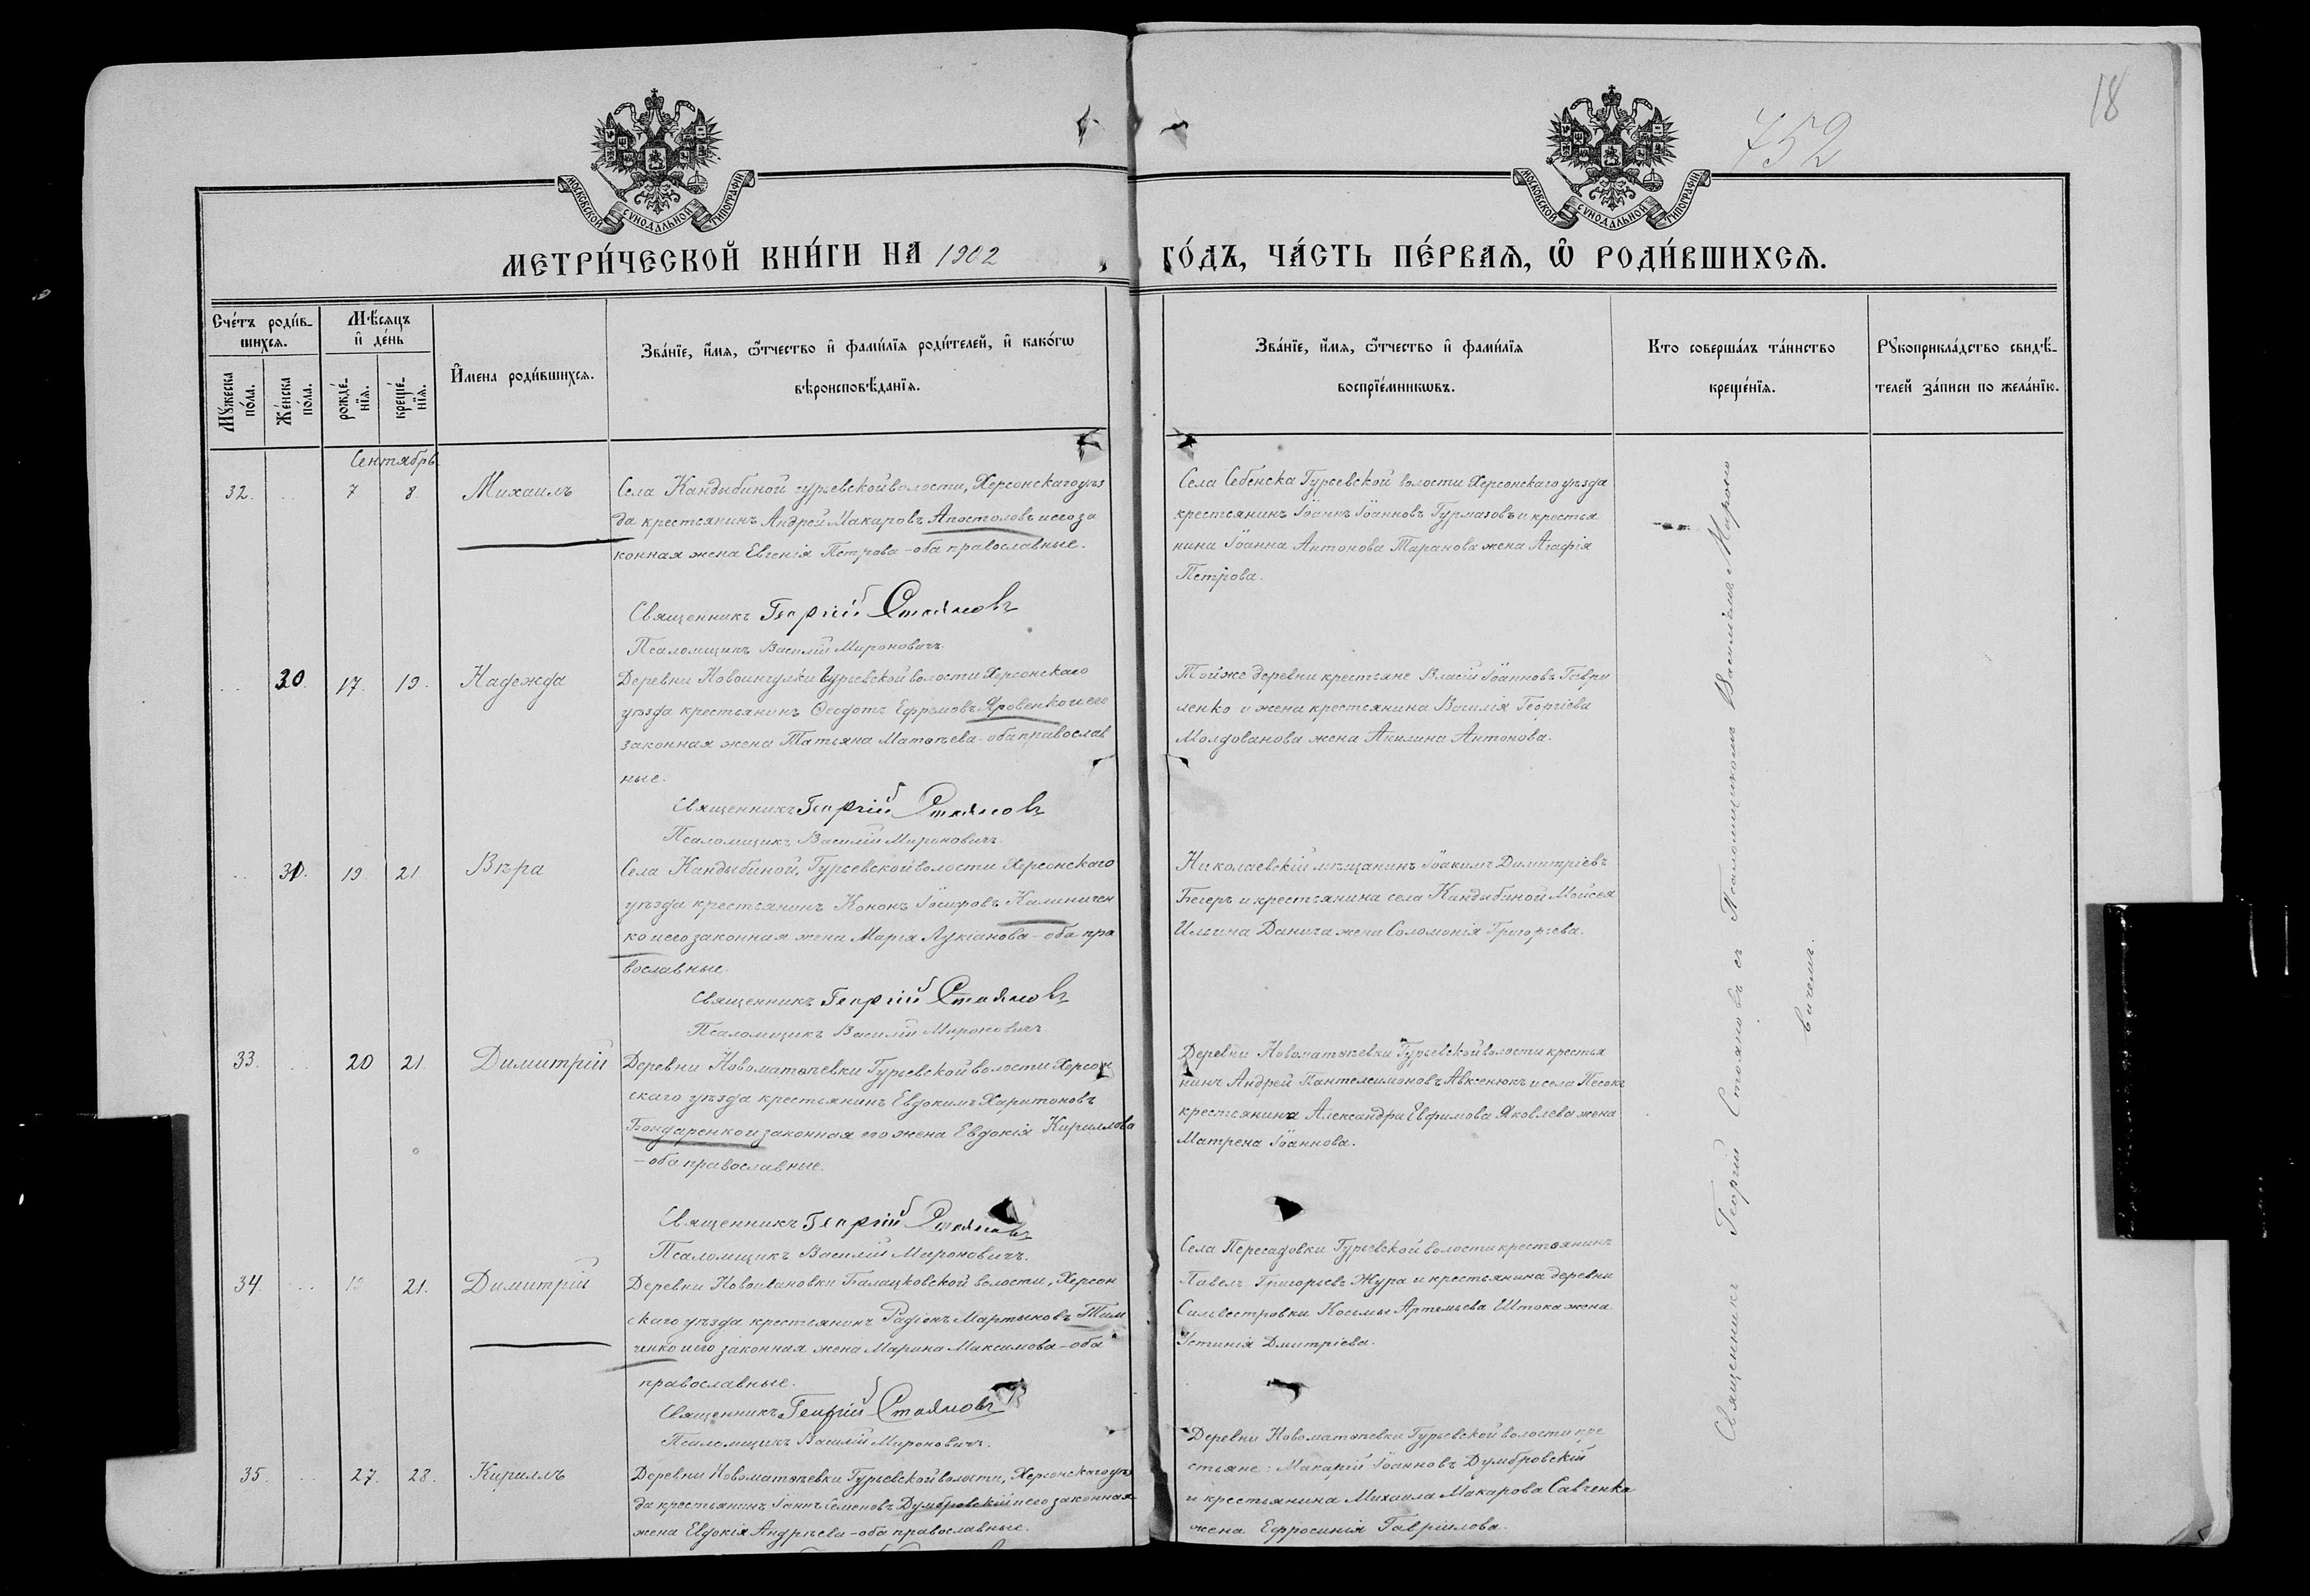 452
18
МОСКОВСКОЙ СѴНОДАЛЬНОЙ ТИПОГРАФІИ
МОСКОВСКОЙ СѴНОДАЛЬНОЙ ТИПОГРАФІИ
МЕТРИ́ЧЕСКОЙ КНИ́ГИ НА 1902
ГО́ДЪ, ЧА́СТЬ ПЕ́РВАѦ, Ѽ РОДИ́ВШИХСѦ.
Сче́тъ роди́в-
шихсѧ.
Мѣ́сѧцъ
и҆ де́нь
Мꙋ́жеска
по́ла.
Же́нска
по́ла.
рожде́-
нїѧ.
креще́-
нїѧ.
И҆мена роди́вшихсѧ.
Зва́нїе, и҆́мѧ, ѻ҆́тчество и҆ фами́лїѧ роди́телей, и҆ како́гѡ
вѣроисповѣ́данїѧ.
Зва́нїе, и҆́мѧ, ѻ҆́тчество и҆ фами́лїѧ
воспрїе́мникѡвъ.
Кто соверша́лъ та́инство
креще́нїѧ.
Рꙋкоприкла́дство свидѣ́-
телей за́писи по жела́нїю.
Сентябрь
32. 7 8. Михаилъ
Села Кандыбиной гурьевской волости, Херсонскаго уѣз
да крестьянинъ Андрей Макаровъ Апостоловъ и его за
конная жена Евгенія Петрова - оба православные.
Священникъ Георгій Стояновъ
Псаломщикъ Василій Мироновичъ.
Села Себенска Гурьевской волости Херсонскаго уѣзда
крестьянинъ Іоаннъ Іоанновъ Гурмазовъ и крестья
нина Іоанна Антонова Таранова жена Агафія
Петрова.
30. 17. 19. Надежда
Деревни Новоингулки Гурьевской волости Херсонскаго
уѣзда крестьянинъ Ѳеодотъ Ефремовъ Яровенко и его
законная жена Татьяна Матѳѣева - оба православ
ные.
Священникъ Георгій Стояновъ
Псаломщикъ Василій Мироновичъ.
Той же деревни крестьяне Власій Іоанновъ Гаври
ленко и жена крестьянина Василія Георгіева
Молдованова жена Акилина Антонова.
31. 19. 21. Вѣра
Села Кандыбиной, Гурьевской волости Херсонскаго
уѣзда крестьянинъ Кононъ Калиничен
ко и его законная жена Марія Лукіанова - оба пра
вославные.
Священникъ Георгій Стояновъ
Псаломщикъ Василій Мироновичъ
Николаевскій мѣщанинъ Іоакимъ Димитріевъ
Бегеръ и крестьянина села Кандыбиной Моисея
Ильина Данича жена Соломонія Григорьева.
33. 20 21. Димитрій
Деревни Новоматѳѣевки Гурьевской волости Херсон
скаго уѣзда крестьянинъ Евдокимъ Харитоновъ
Бондаренко и законная его жена Евдокія Кириллова
- оба православные.
Священникъ Георгій Стояновъ
Псаломщикъ Василій Мироновичъ.
Деревни Новоматѳѣевки Гурьевской волости крестья
нинъ Андрей Пантелеимоновъ Авксенюкъ и села Песокъ
крестьянина Александра Евфимова Яковлева жена
Матрена Іоаннова.
34. 19 21. Димитрій
Деревни Новоивановки Балацковской волости, Херсон
скаго уѣзда крестьянинъ Радіонъ Мартыновъ Тим
ченко и его законная жена Марина Максимова - оба
православные.
Священникъ Георгій Стояновъ
Псаломщикъ Василій Мироновичъ.
Села Пересадовки Гурьевской волости крестьянинъ
Павелъ Григорьевъ Жура и крестьянина деревни
Сильвестровки Космы Артемьева Штока жена
Устинія Дмитріева.
35. 27. 28. Кириллъ
Деревни Новоматѳѣевки Гурьевской волости, Херсонскаго уѣз
да крестьянинъ Іоаннъ Семеновъ Думбровскій и его законная
жена Евдокія Андреева - оба православные.
Деревни Новоматѳѣевки Гурьевской волости кре
стьяне: Макарій Іоанновъ Думбровскій
и крестьянина Михаила Макарова Савченка
жена Ефросинія Гавріилова.
Священникъ Георгій Стояновъ съ Псаломщикомъ Василіемъ Мироно
вичемъ.